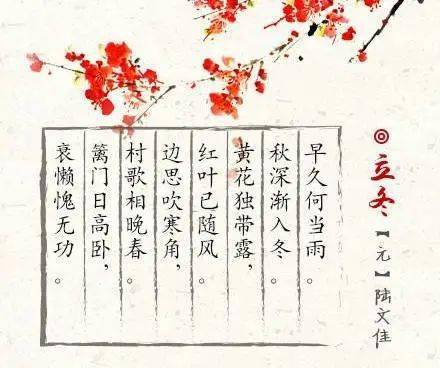 ◎立冬【元】陆文佳
早久何当雨。
秋深渐入冬。
黄花独带露，
红叶已随风。
边思吹寒角，
村歌相晚春。
篱门日高卧，
衰懒愧无功。